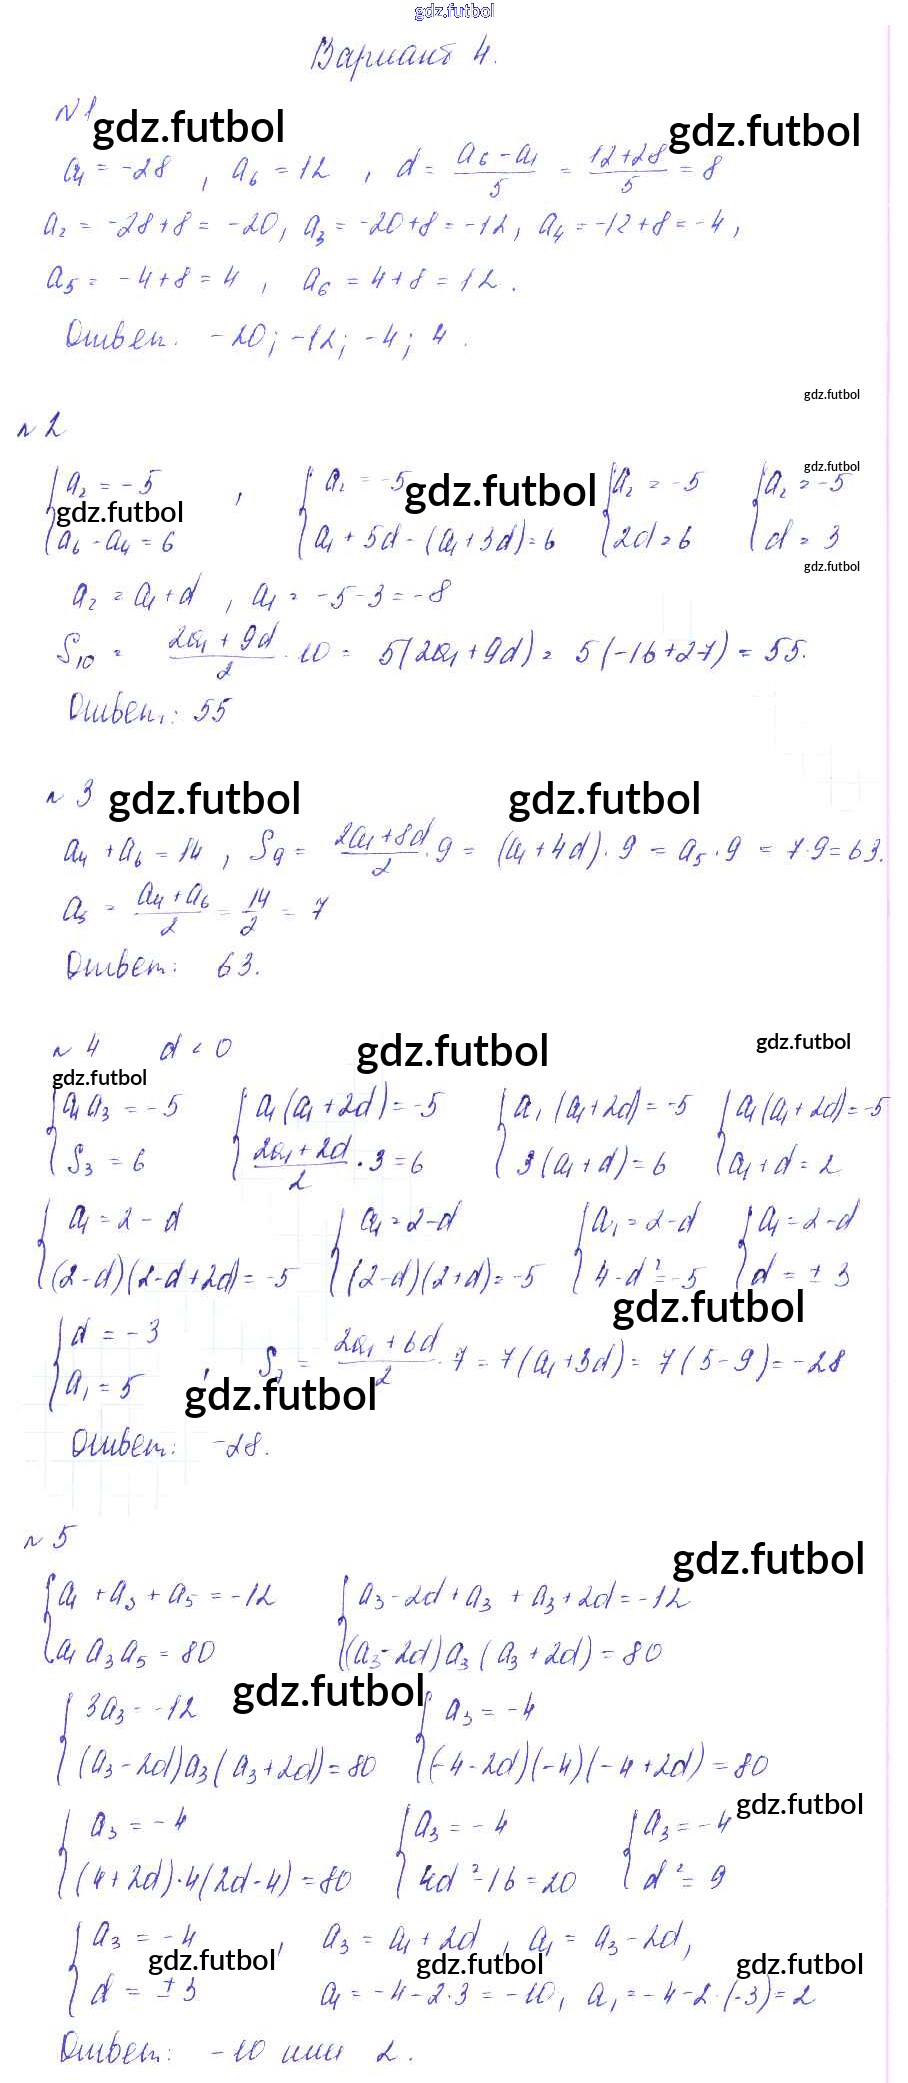 gdz.futbol
Вариант 4.
№1 gdz.futbol gdz.futbol
a₁ = -28 , a₆ = 12 , d = (a₆ - a₁)/5 = (12+28)/5 = 8
a₂ = -28+8 = -20, a₃ = -20+8 = -12, a₄ = -12+8 = -4,
a₅ = -4+8 = 4 , a₆ = 4+8 = 12.
Ответ. -20; -12; -4; 4.
gdz.futbol
№2
gdz.futbol
{ a₂ = -5 , { a₂ = -5 gdz.futbol { a₂ = -5 { a₂ = -5
gdz.futbol
a₆ - a₄ = 6 a₁ + 5d - (a₁ + 3d) = 6 2d = 6 d = 3
gdz.futbol
a₂ = a₁ + d , a₁ = -5-3 = -8
S₁₀ = (2a₁ + 9d)/2 · 10 = 5(2a₁ + 9d) = 5(-16+27) = 55.
Ответ: 55
№3 gdz.futbol gdz.futbol
a₄ + a₆ = 14 , S₉ = (2a₁+8d)/2 · 9 = (a₁ + 4d) · 9 = a₅ · 9 = 7·9 = 63.
a₅ = (a₄ + a₆)/2 = 14/2 = 7
Ответ: 63.
№4 d < 0 gdz.futbol gdz.futbol
gdz.futbol
{ a₁a₃ = -5 { a₁(a₁ + 2d) = -5 { a₁(a₁+2d) = -5 { a₁(a₁+2d) = -5
S₃ = 6 (2a₁ + 2d)/2 · 3 = 6 3(a₁ + d) = 6 a₁ + d = 2
{ a₁ = 2 - d { a₁ = 2-d { a₁ = 2-d { a₁ = 2-d
(2-d)(2-d+2d) = -5 (2-d)(2+d) = -5 4-d² = -5 d = ±3
gdz.futbol
{ d = -3
a₁ = 5 , S₇ = (2a₁ + 6d)/2 · 7 = 7(a₁+3d) = 7(5-9) = -28
gdz.futbol
Ответ: -28.
№5
gdz.futbol
{ a₁ + a₃ + a₅ = -12 { a₃-2d+a₃ + a₃+2d = -12
a₁a₃a₅ = 80 (a₃-2d)a₃(a₃+2d) = 80
gdz.futbol
{ 3a₃ = -12 { a₃ = -4
(a₃-2d)a₃(a₃+2d) = 80 (-4-2d)(-4)(-4+2d) = 80
gdz.futbol
{ a₃ = -4 { a₃ = -4 { a₃ = -4
(4+2d)·4(2d-4) = 80 4d²-16 = 20 d² = 9
{ a₃ = -4 , a₃ = a₁ + 2d , a₁ = a₃ - 2d,
gdz.futbol gdz.futbol gdz.futbol
d = ±3 a₁ = -4-2·3 = -10, a₁ = -4-2·(-3) = 2
Ответ: -10 или 2.